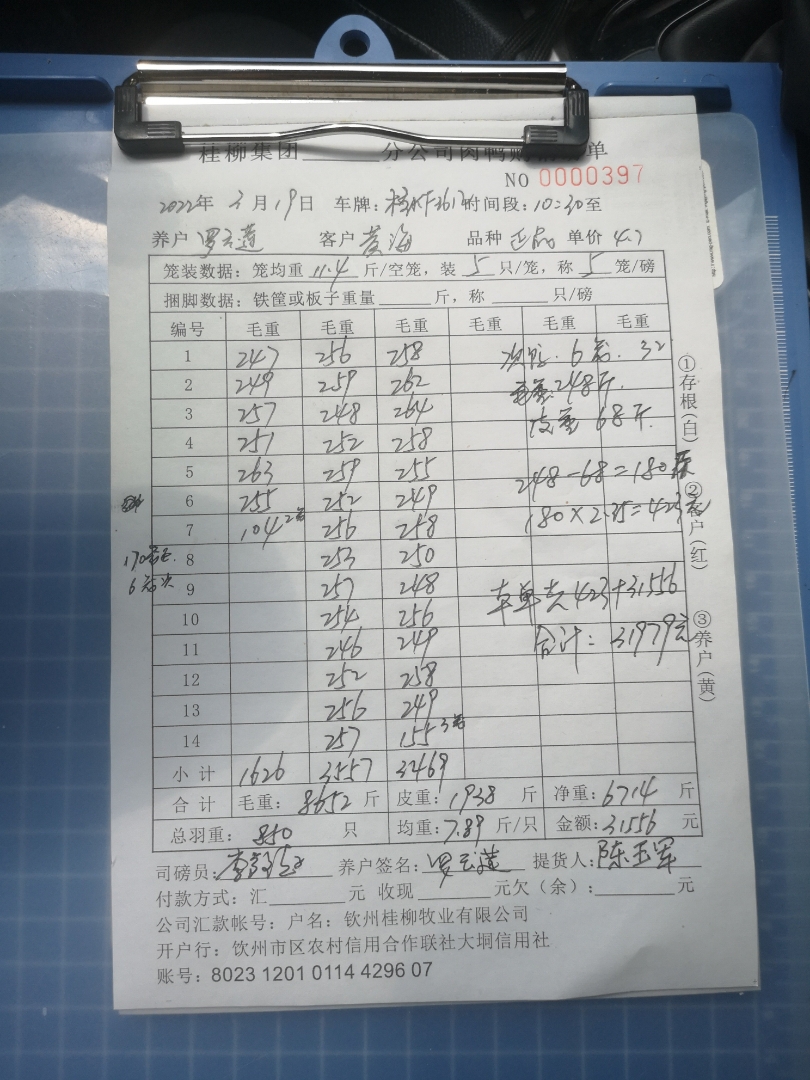 桂柳集团______分公司肉鸭购销磅单
NO 0000397
2022年 3月19日 车牌: 时间段: 10:30至
养户 罗云莲 客户 黄海 品种 正品 单价 4.7
笼装数据: 笼均重 11.4 斤/空笼, 装 5 只/笼, 称 5 笼/磅
捆脚数据: 铁筐或板子重量______斤, 称______只/磅
编号 毛重 毛重 毛重 毛重 毛重 毛重
1 247 256 258 次鸭. 6笼. 32
2 249 259 262 毛重: 248斤.
3 257 248 264 皮重 68斤.
4 251 252 258
5 263 259 255 248-68=180斤
6 255 252 249
7 104 2笼 256 258 180×2.35=423元
170笼正.
8 253 250
6笼次
9 257 248 本单去423+31556
10 254 256
11 246 249 合计: 31979元
12 252 258
13 256 249
14 257 155 3笼
小计 1626 3557 3469
合计 毛重: 8652 斤 皮重: 1938 斤 净重: 6714 斤
总羽重: 850 只 均重: 7.89 斤/只 金额: 31556 元
司磅员: 养户签名: 罗云莲 提货人: 陈玉军
付款方式: 汇______元 收现______元欠(余): ______元
公司汇款帐号: 户名: 钦州桂柳牧业有限公司
开户行: 饮州市区农村信用合作联社大垌信用社
账号: 8023 1201 0114 4296 07
①存根(白)
②客户(红)
③养户(黄)